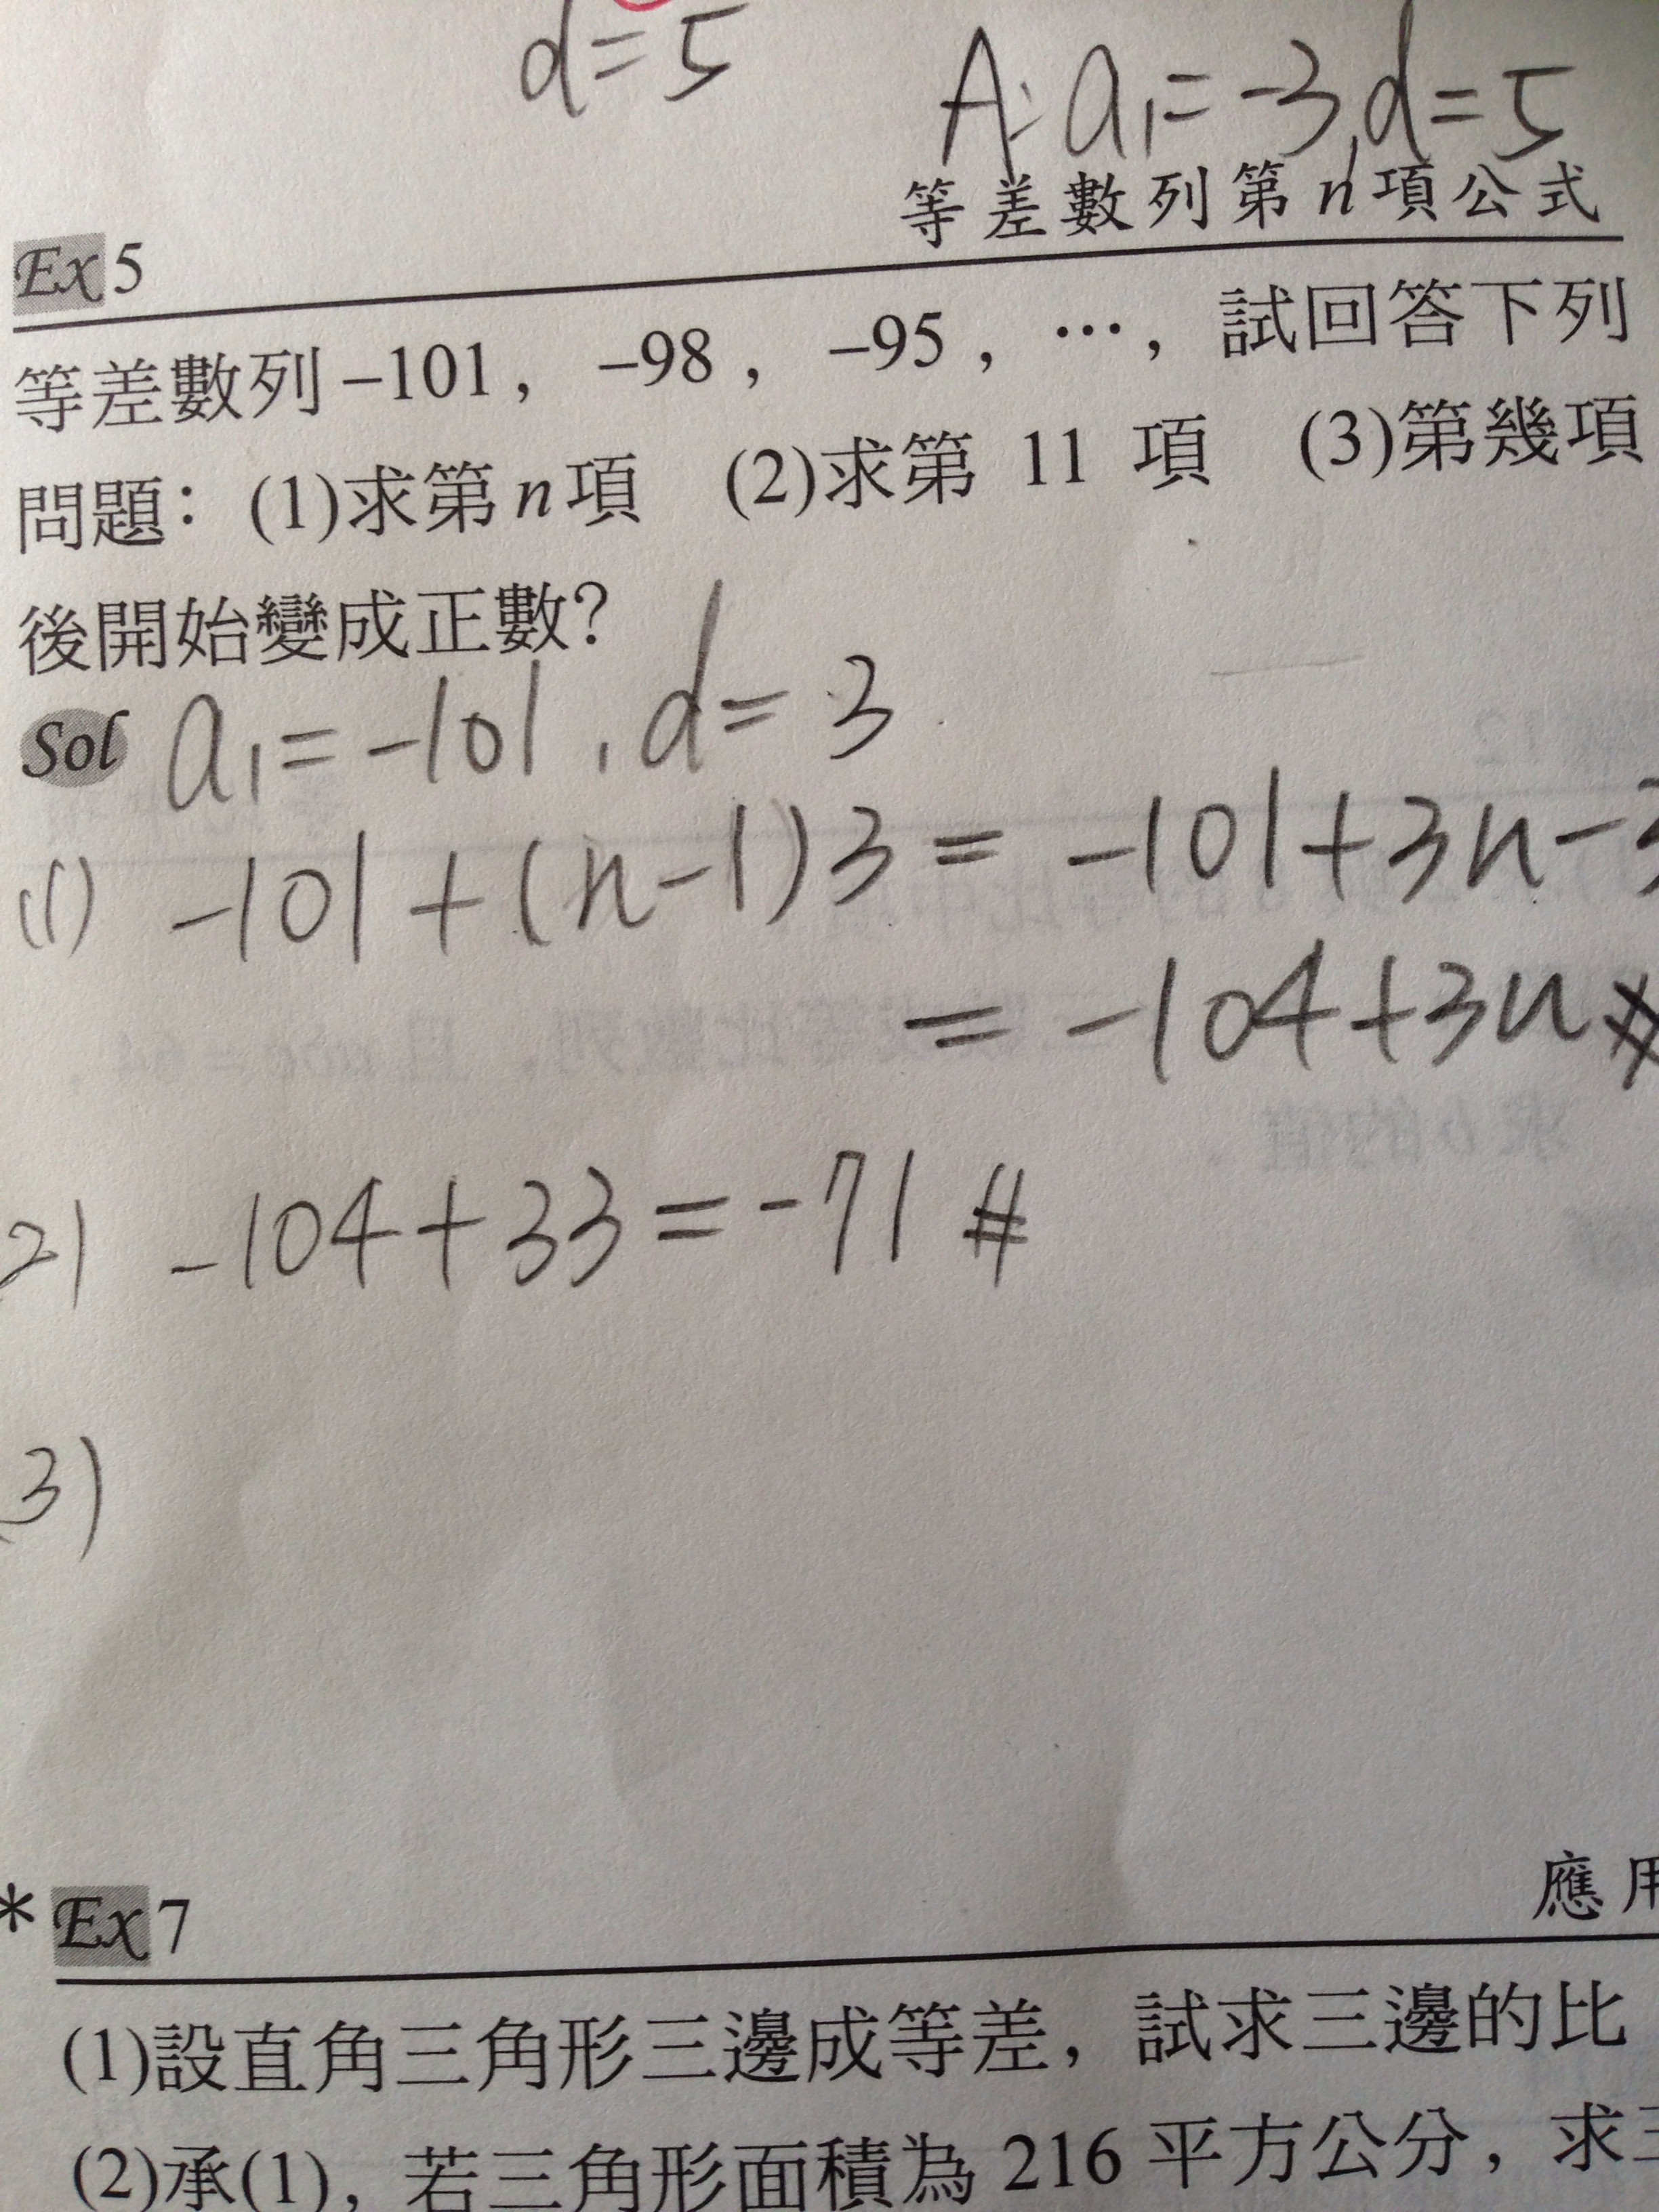 d=5
A: a₁=-3, d=5
等差數列第n項公式
Ex5
等差數列 –101, –98, –95, …, 試回答下列
問題: (1)求第n項 (2)求第 11 項 (3)第幾項
後開始變成正數?
Sol a₁=-101, d=3
(1) -101+(n-1)3= -101+3n-3
= -104+3n #
2) -104+33=-71 #
(3)
* Ex7
應用
(1)設直角三角形三邊成等差, 試求三邊的比
(2)承(1), 若三角形面積為 216 平方公分, 求三